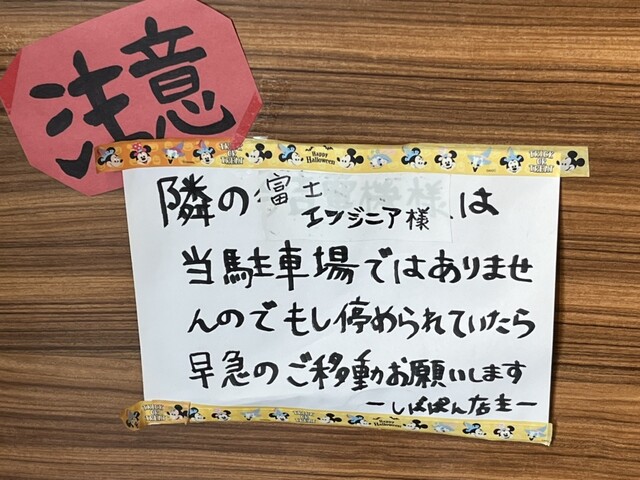 注意
TRICK OR TREAT
Happy Halloween
TRICK OR TREAT
隣の富士エンジニア様は
当駐車場ではありませ
んのでもし停められていたら
早急のご移動お願いします
ーしばぱん店主ー
TRICK OR TREAT
Happy Halloween
TRICK OR TREAT